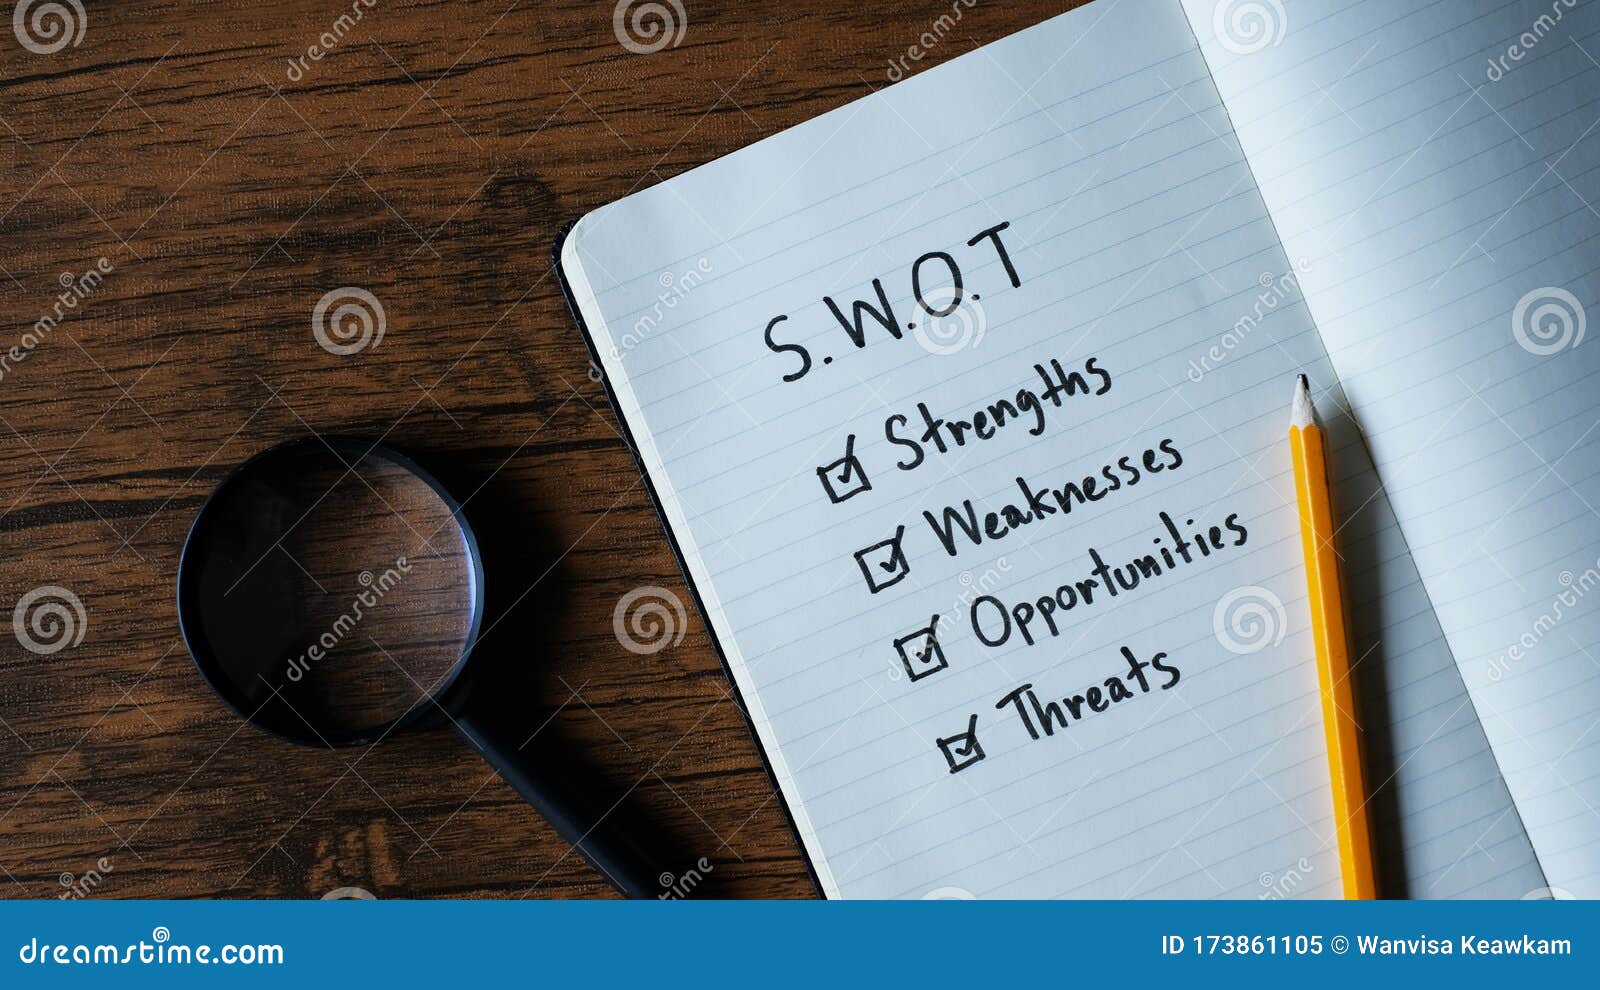 S.W.O.T
Strengths
Weaknesses
Opportunities
Threats
dreamstime.com
ID 173861105 © Wanvisa Keawkam